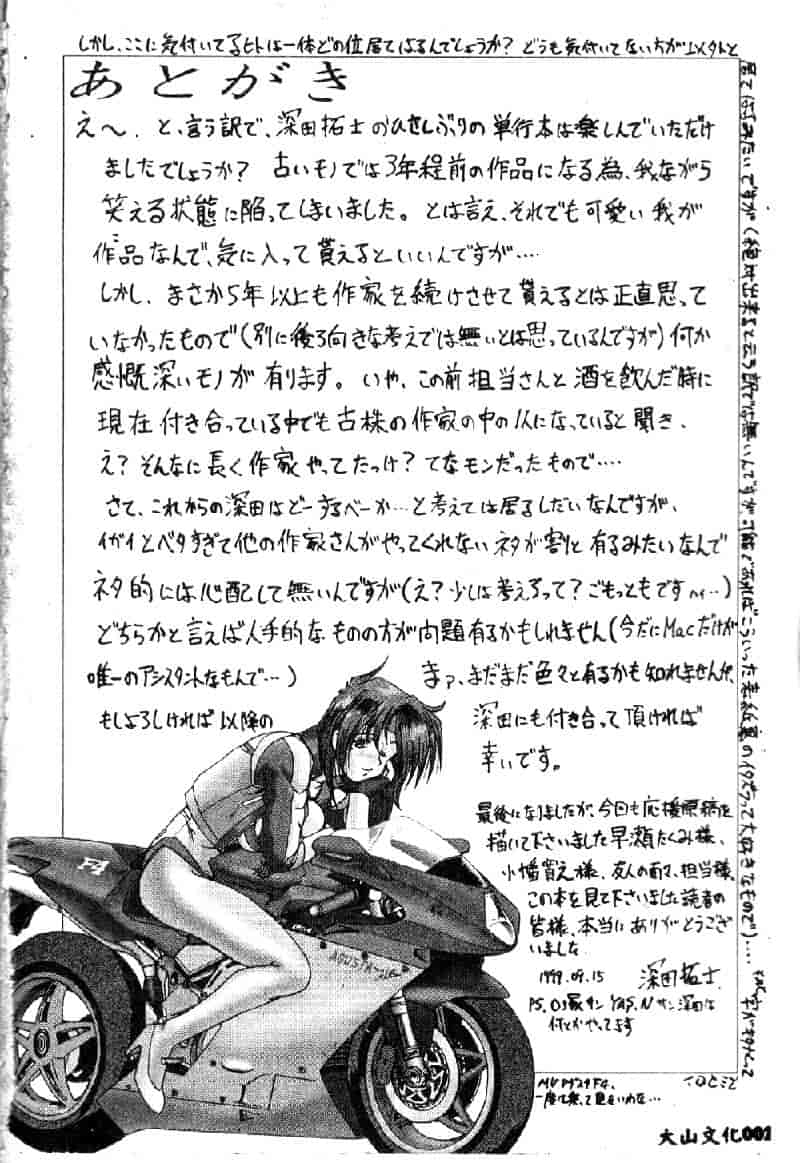 しかし、ここに気付いてるヒトは一体どの位居てはるんでしょうか? どうも気付いてない方が
あとがき
え〜、と、言う訳で、深田拓士のひさしぶりの単行本は楽しんでいただけ
ましたでしょうか? 古いモノでは3年程前の作品になる為、我ながら
笑える状態に陥ってしまいました。とは言え、それでも可愛い我が
作品なんで、気に入って貰えるといいんですが‥‥
しかし、まさか5年以上も作家を続けさせて貰えるとは正直思って
いなかったもので(別に後ろ向きな考えでは無いとは思っているんですが)何か
感慨深いモノが有ります。いや、この前担当さんと酒を飲んだ時に
現在付き合っている中でも古株の作家の中の1人になっていると聞き、
え? そんなに長く作家やってたっけ? てなモンだったもので‥‥
さて、これからの深田はどーするべーか…と考えては居るしだいなんですが、
イガイとベタすぎて他の作家さんがやってくれないネタが割と有るみたいなんで
ネタ的には心配して無いんですが(え? 少しは考えろって? ごもっともです…)
どちらかと言えば人手的なものの方が問題有るかもしれません(今だにMacだけが
唯一のアシスタントなもんで…) まァ、まだまだ色々と有るかも知れませんが、
もしよろしければ以降の
深田にも付き合って頂ければ
幸いです。
最後になりましたが、今回も応援原稿を
描いて下さいました早瀬たくみ様、
小幡貢え様、友人の面々、担当様、
この本を見て下さいました読者の
皆様、本当にありがとうござ
いました
1999.09.15 深田拓士
何とかやってます
F4
AGUSTA
一度で良いて見をいわな…
大山文化001